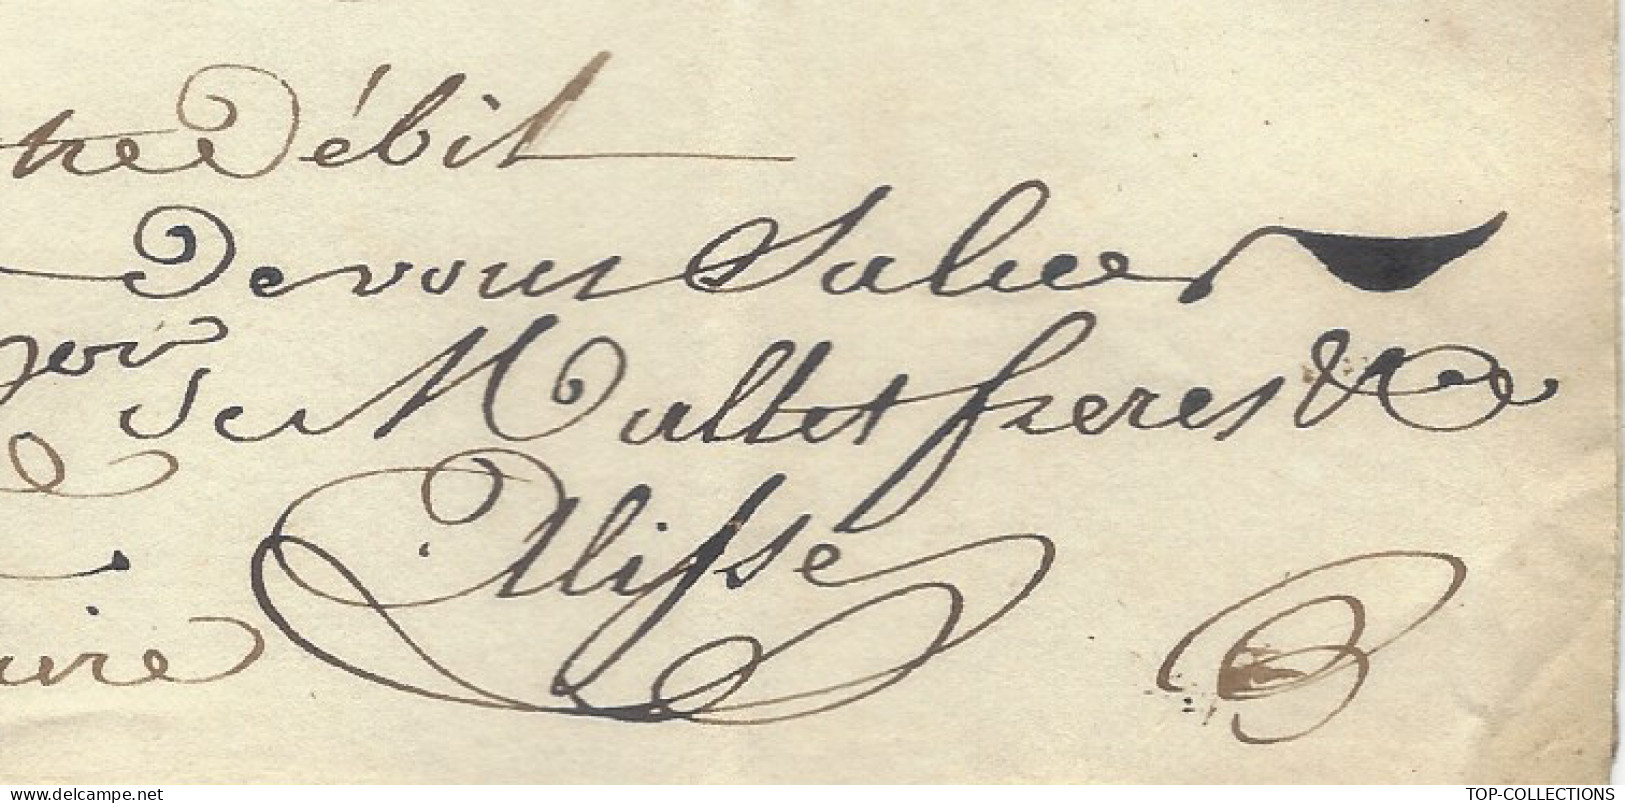 tre Débit
De vous Saluer
de Mallet freres & Ce
Ulisse
www.delcampe.net
TOP-COLLECTIONS